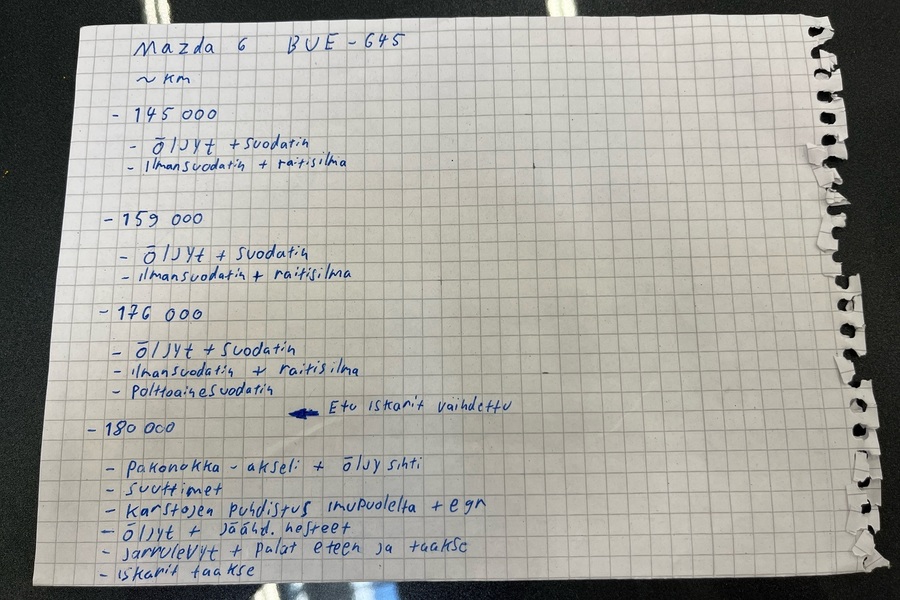 Mazda 6 BUE-645
~ km
- 145 000
- öljyt + suodatin
- ilmansuodatin + raitisilma
- 159 000
- öljyt + suodatin
- ilmansuodatin + raitisilma
- 176 000
- öljyt + suodatin
- ilmansuodatin + raitisilma
- Polttoainesuodatin
Etu iskarit vaihdettu
- 180 000
- Pakonokka-akseli + öljysihti
- Suuttimet
- Karstojen puhdistus imupuolelta + egr
- öljyt + jäähd. nesteet
- jarrulevyt + palat eteen ja taakse
- iskarit taakse